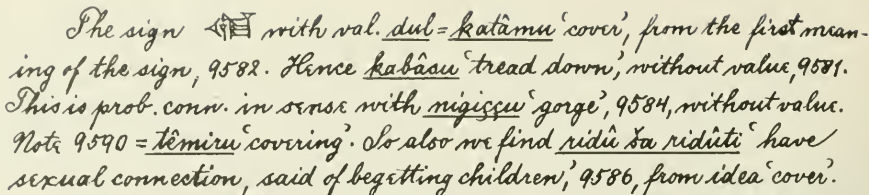 The sign with val. dul = katâmu ‘cover’, from the first mean-
ing of the sign, 9582. Hence kabâsu ‘tread down’, without value, 9581.
This is prob. conn. in sense with nigiççu ‘gorge’, 9584, without value.
Note 9590 = têmiru ‘covering’. So also we find ridû ša ridûti ‘have
sexual connection, said of begetting children,’ 9586, from idea ‘cover’.